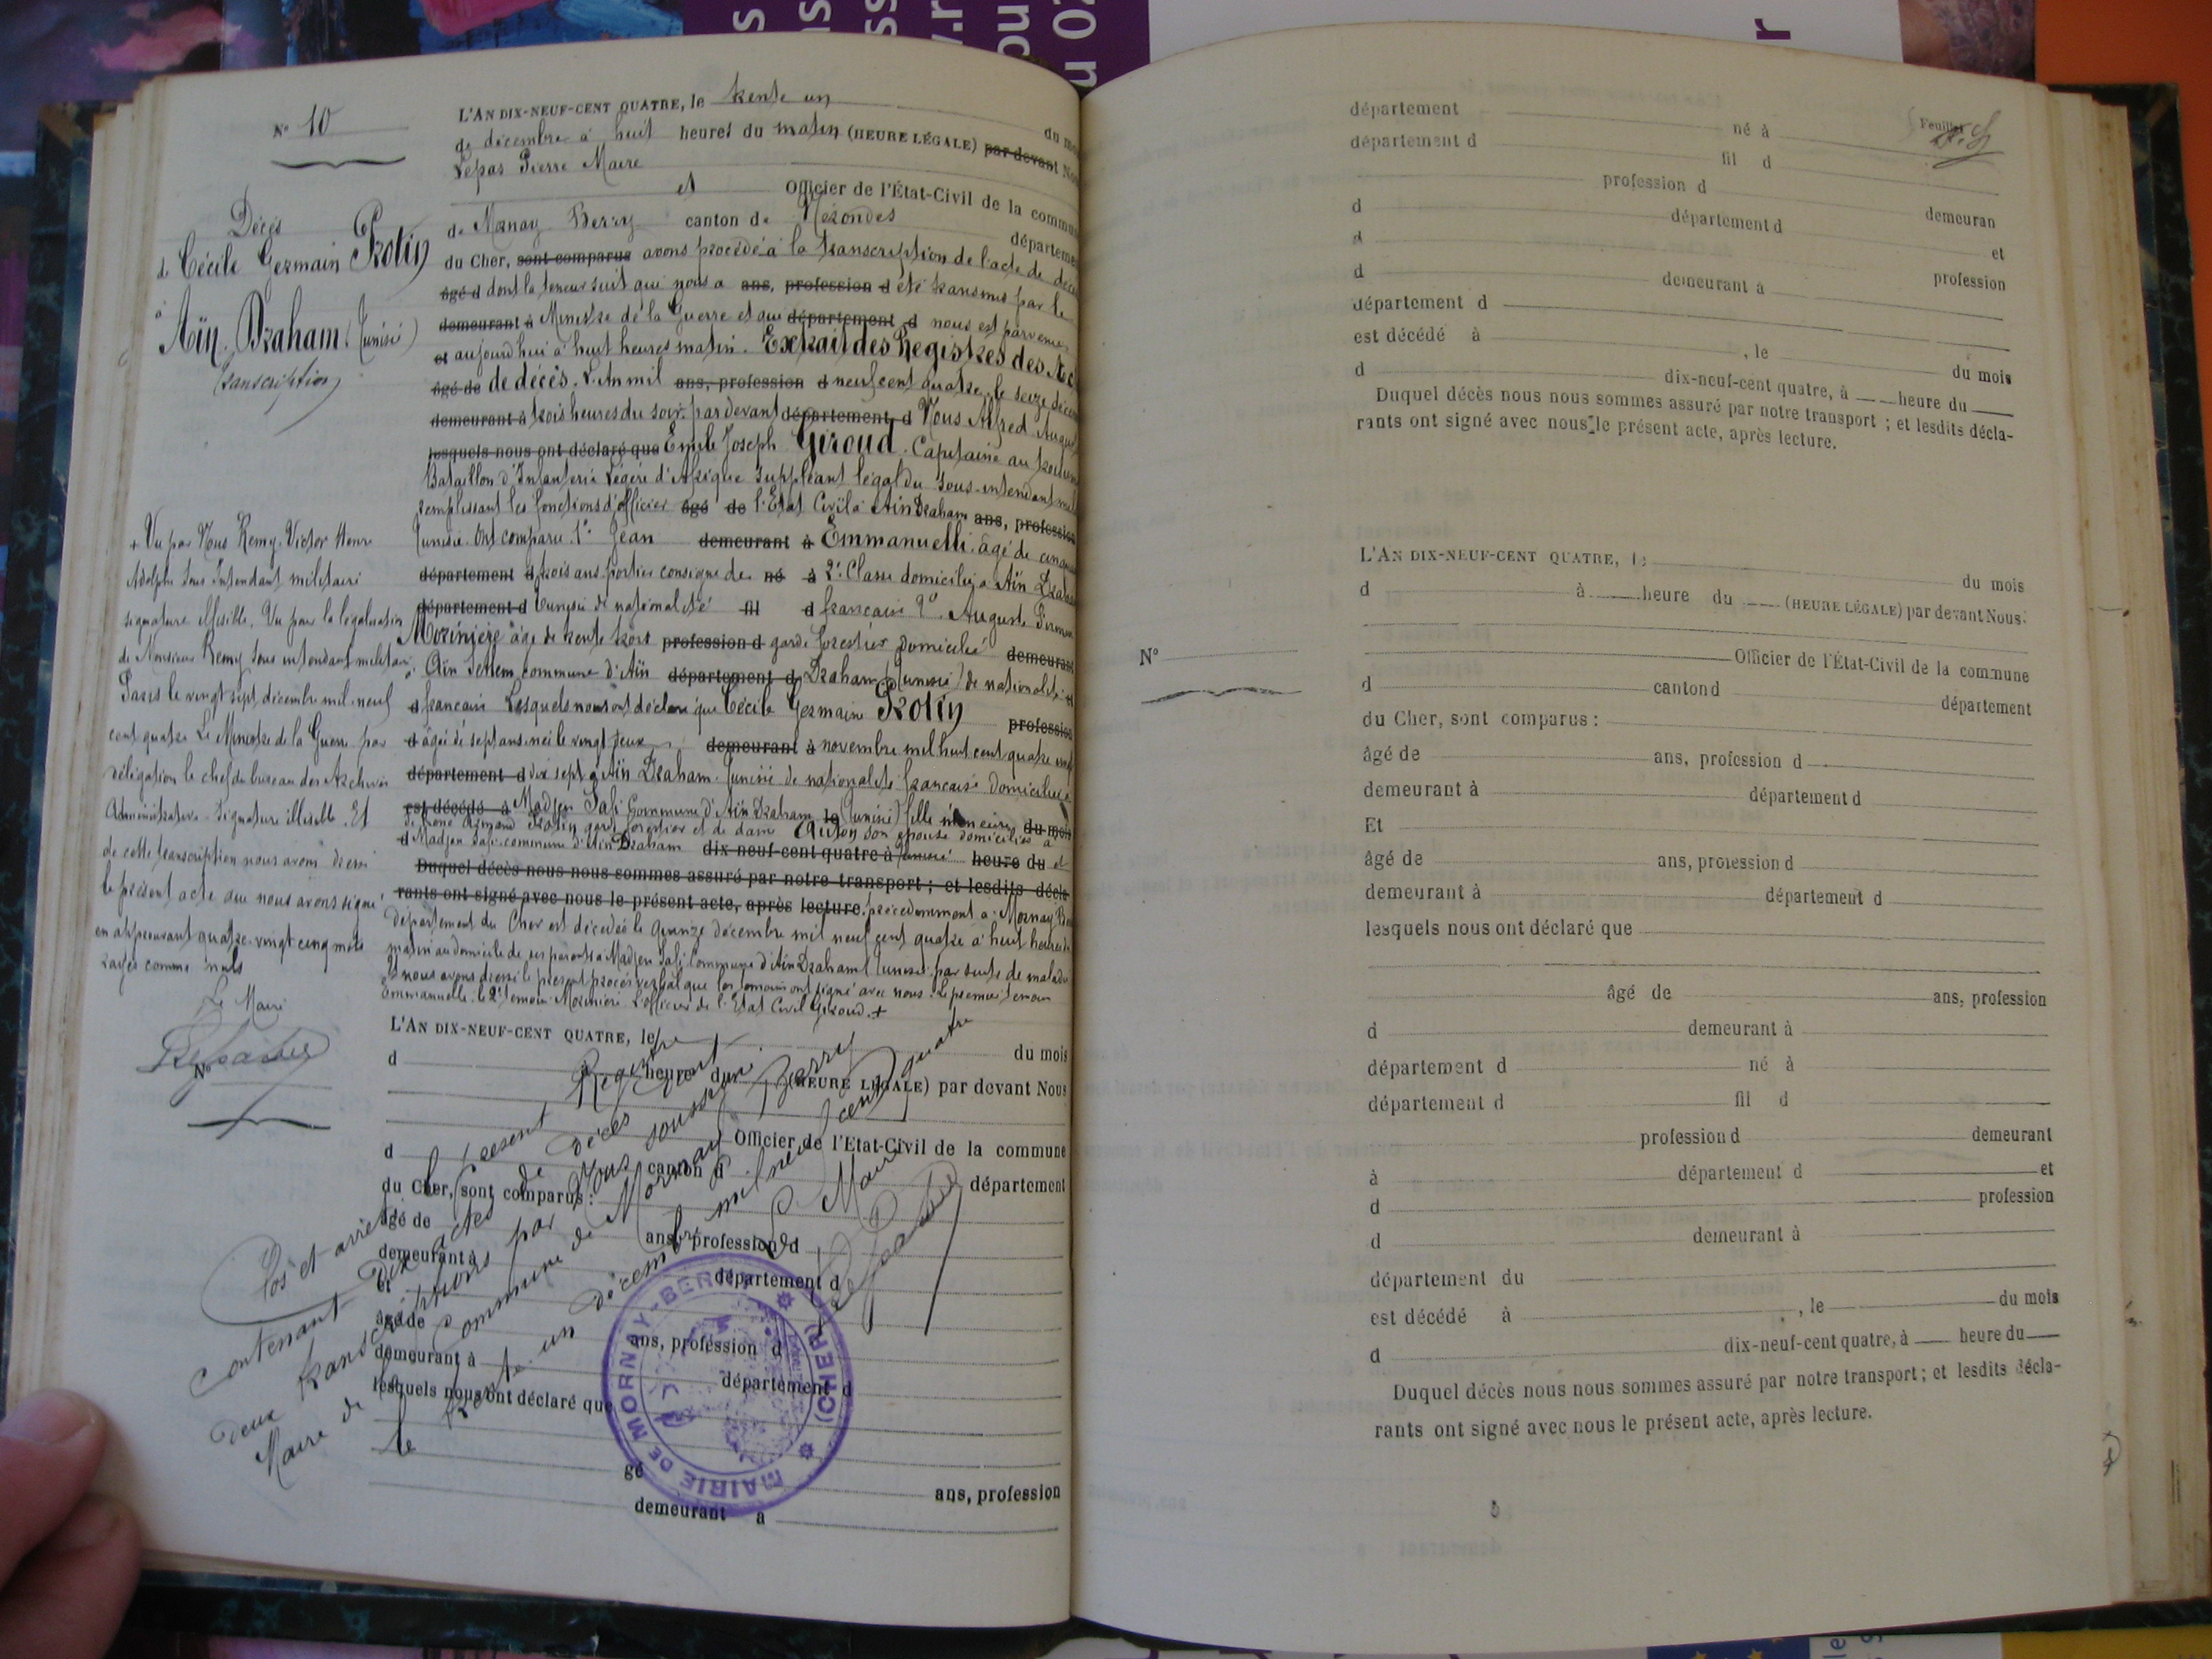 N° 10
Décès
de Cécile Germain Protin
à
Aïn. Draham (Tunisie)
transcription
L'AN DIX-NEUF-CENT QUATRE, le trente un du mois
de décembre à huit heures du matin (HEURE LÉGALE) par devant Nous
Pierre Maire
et Officier de l'État-Civil de la commune
de Mornay Berry canton de Nérondes département
du Cher, sont comparus avons procédé à la transcription de l'acte de décès
âgé d dont la teneur suit qui nous a ans, profession d été transmis par le
demeurant à Ministre de la Guerre et qui département d nous est parvenu
et aujourd'hui à huit heures matin. Extrait des Registres des Actes
âgé de de décès. L'An mil ans, profession d neuf cent quatre, le seize décembre
demeurant à trois heures du soir. par devant département d Nous Alfred August
lesquels nous ont déclaré que Emile Joseph Giroud. Capitaine au troisième
Bataillon d'Infanterie Légère d'Afrique Suppléant légal du Sous-intendant
remplissant les fonctions d'officier âgé de l'Etat Civil à Aïn Draham ans, profession
Tunisie. Ont comparu. 1° Jean demeurant à Emmanuelli. âgé de cinquante
département d trois ans portier consigne de né à 2e Classe domicilié à Aïn Draham
département d Tunisie de nationalité fil d francaise 2° Auguste Firmin
Morinière âgé de trente trois profession d garde forestier domicilié demeurant
à Aïn commune d'Aïn département d Draham (Tunisie) de nationalité et
d francaise Lesquels nous ont déclaré que Cécile Germaine Protin profession
d âgée de sept ans. née le vingt deux demeurant à novembre mil huit cent quatre vingt
département d dix sept à Aïn Draham. Tunisie de nationalité francaise domiciliée
est décédé à Madjen Safi Commune d'Aïn Draham le (Tunisie) fille mineure du mois
de René Armand Protin garde forestier et de dame son épouse domiciliés à
d Madjen Safi commune d'Aïn Draham dix-neuf-cent quatre à Tunisie heure du et
Duquel décès nous nous sommes assuré par notre transport ; et lesdits décla-
rants ont signé avec nous le présent acte, après lecture. précédemment à Mornay Berry
Département du Cher est décédée le quinze décembre mil neuf cent quatre à huit heures du
matin au domicile de ses parents à Madjen Safi Commune d'Aïn Draham (Tunisie) par suite de maladie
Et nous avons dressé le présent procès verbal que les témoins ont signé avec nous. Le premier témoin
Emmanuelli. le 2e témoin Morinière. L'officier de l'Etat Civil Giroud. +
+ Vu par Nous Remy. Victor Henri
Adolphe Sous Intendant militaire
signature illisible. Vu pour la légalisation
de Monsieur Remy Sous intendant militaire
Paris le vingt sept décembre mil neuf
cent quatre Le Ministre de la Guerre par
délégation le chef du bureau des Archives
Administratives. Signature illisible. Et
de cette transcription nous avons dressé
le présent acte que nous avons signé
en approuvant quatre-vingt cinq mots
rayés comme nuls
Le Maire
N°
L'AN DIX-NEUF-CENT QUATRE, le
du mois
d à heure du (HEURE LÉGALE) par devant Nous
Officier de l'Etat-Civil de la commune
d canton d département
du Cher, sont comparus :
âgé de ans, profession d
demeurant à département d
et
âgé de ans, profession d
demeurant à département d
lesquels nous ont déclaré que
gé ans, profession
demeurant à
Clos et arrêté le présent Registre
contenant Dix actes de décès dont
deux transcriptions par Nous soussigné
Maire de la Commune de Mornay Berry
le trente un décembre mil neuf cent quatre
Le Maire
MAIRIE DE MORNAY-BERRY (CHER)
Feuillet
département né à
département d fil d
profession d
d département d demeuran
d et
d demeurant à profession
département d
est décédé à , le
d dix-neuf-cent quatre, à heure du du mois
Duquel décès nous nous sommes assuré par notre transport ; et lesdits décla-
rants ont signé avec nous le présent acte, après lecture.
N°
L'AN DIX-NEUF-CENT QUATRE, le du mois
d à heure du (HEURE LÉGALE) par devant Nous
Officier de l'État-Civil de la commune
d canton d département
du Cher, sont comparus :
âgé de ans, profession d
demeurant à département d
Et
âgé de ans, profession d
demeurant à département d
lesquels nous ont déclaré que
âgé de ans, profession
d demeurant à
département d né à
département d fil d
profession d demeurant
à département d et
d profession
d demeurant à
département du
est décédé à , le du mois
d dix-neuf-cent quatre, à heure du
Duquel décès nous nous sommes assuré par notre transport ; et lesdits décla-
rants ont signé avec nous le présent acte, après lecture.